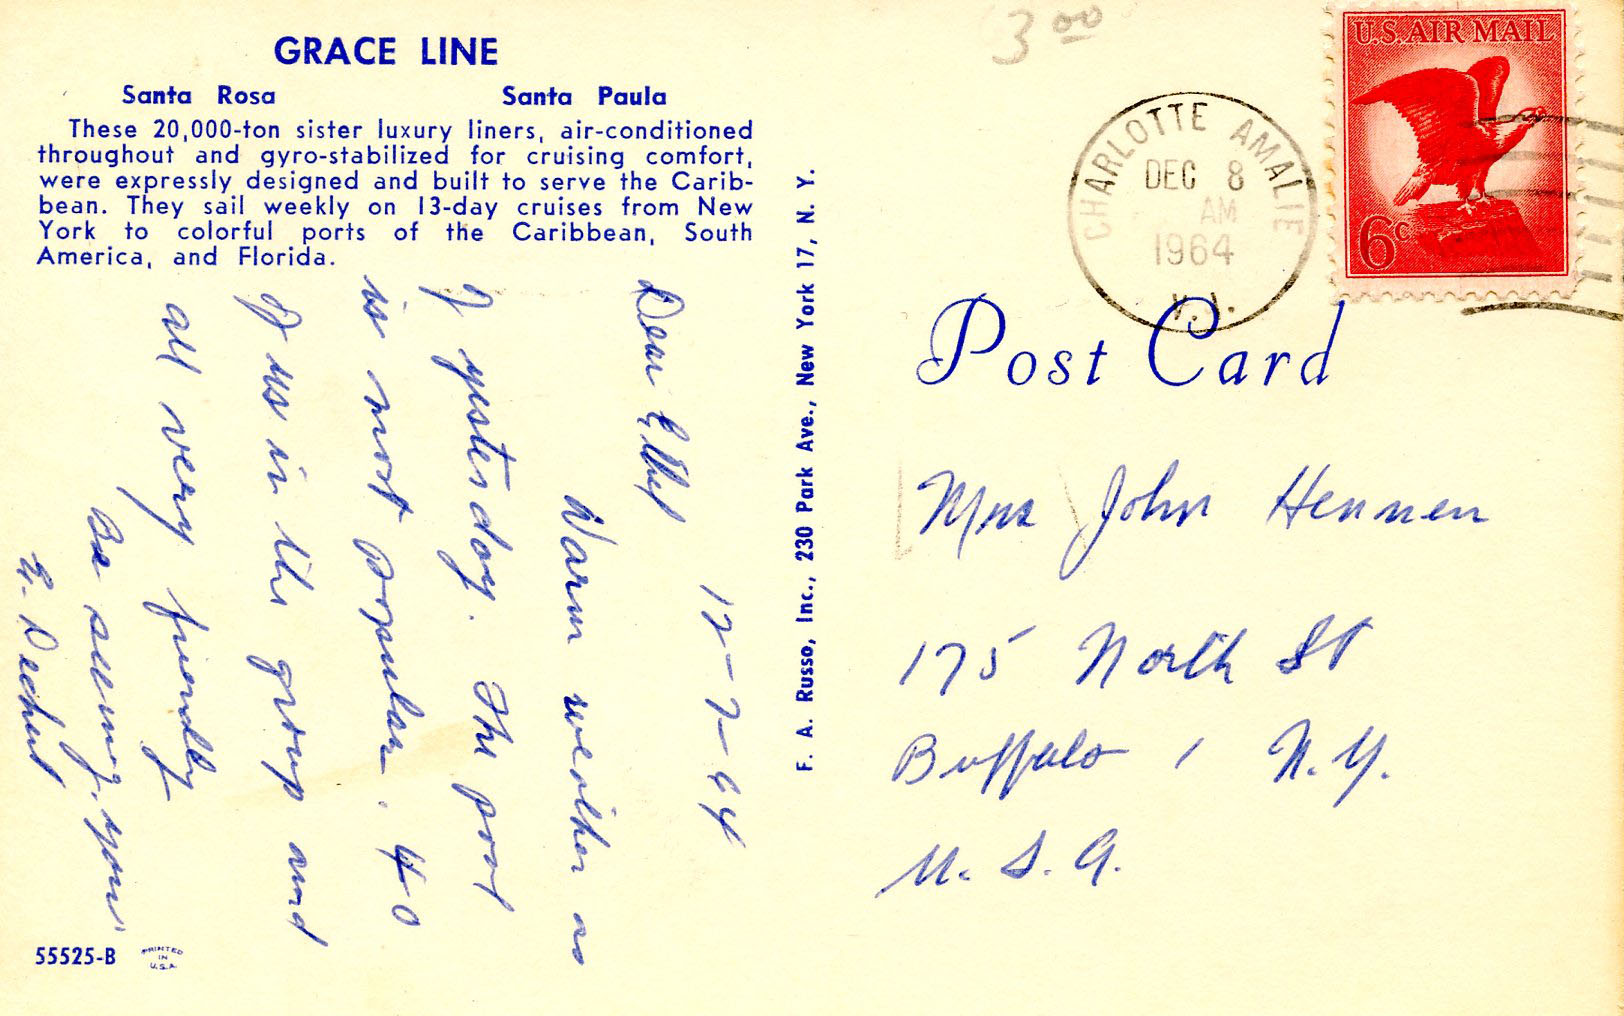 GRACE LINE
Santa Rosa Santa Paula
These 20,000-ton sister luxury liners, air-conditioned
throughout and gyro-stabilized for cruising comfort,
were expressly designed and built to serve the Carib-
bean. They sail weekly on 13-day cruises from New
York to colorful ports of the Caribbean, South
America, and Florida.
12-7-64
Dear
Warm weather as
of yesterday. The pool
is most popular. 40
of us in the group and
all very friendly
Be seeing you
E.
55525-B
PRINTED
IN
U.S.A.
F. A. Russo, Inc., 230 Park Ave., New York 17, N. Y.
3 00
CHARLOTTE AMALIE
DEC 8
AM
1964
V.I.
U.S. AIR MAIL
6c
Post Card
Mrs John Hennen
175 North St
Buffalo 1 N.Y.
U.S.A.